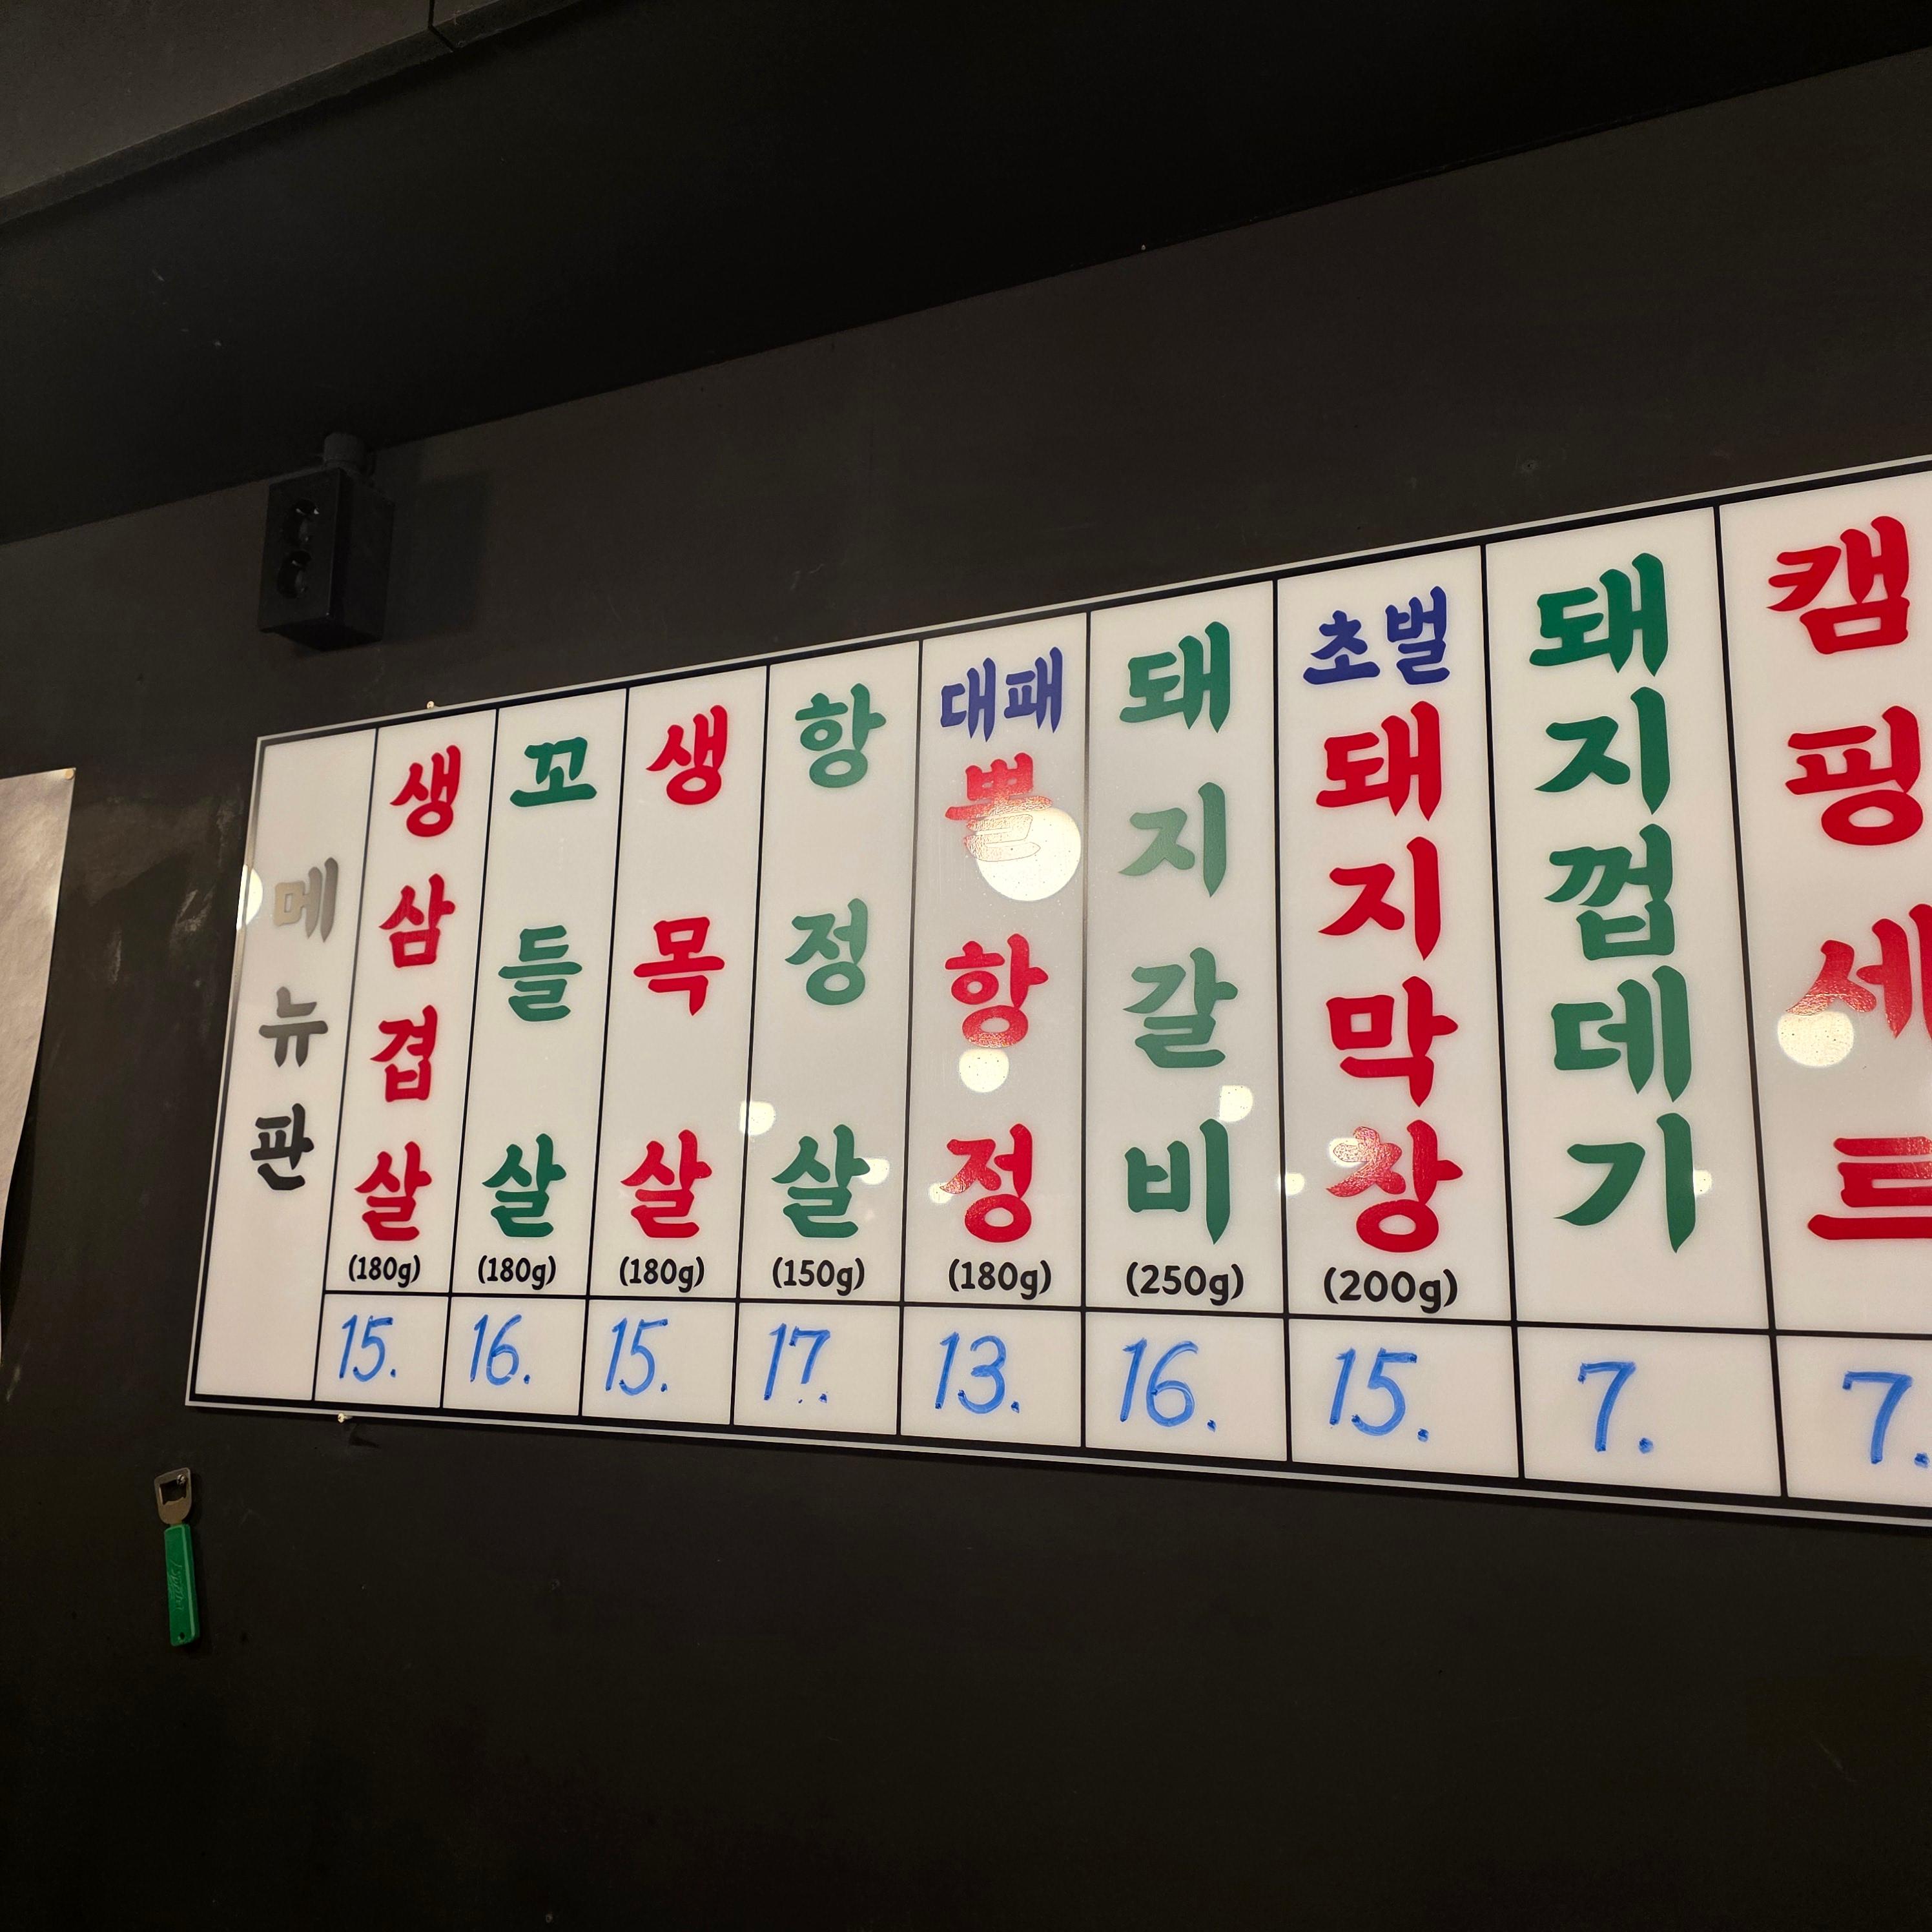 메뉴판
생삼겹살
(180g)
15.
꼬들살
(180g)
16.
생목살
(180g)
15.
항정살
(150g)
17.
대패
뽈항정
(180g)
13.
돼지갈비
(250g)
16.
초벌
돼지막창
(200g)
15.
돼지껍데기
7.
캠핑세트
7.